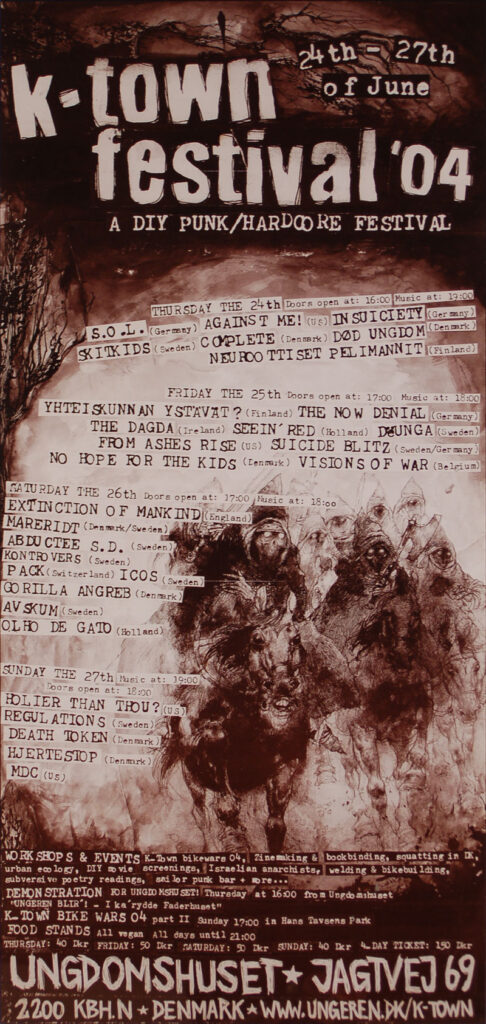 24th - 27th
of June
k-town
festival '04
A DIY PUNK/HARDCORE FESTIVAL
THURSDAY THE 24th Doors open at: 16:00 Music at: 19:00
S.O.L. (Germany) AGAINST ME! (US) INSUICIETY (Germany)
SKITKIDS (Sweden) COMPLETE (Denmark) DØD UNGDOM (Denmark)
NEUROOTTISET PELIMANNIT (Finland)
FRIDAY THE 25th Doors open at: 17:00 Music at: 18:00
YHTEISKUNNAN YSTAVAT? (Finland) THE NOW DENIAL (Germany)
THE DAGDA (Ireland) SEEIN' RED (Holland) DJUNGA (Sweden)
FROM ASHES RISE (US) SUICIDE BLITZ (Sweden/Germany)
NO HOPE FOR THE KIDS (Denmark) VISIONS OF WAR (Belgium)
SATURDAY THE 26th Doors open at: 17:00 Music at: 18:00
EXTINCTION OF MANKIND (England)
MARERIDT (Denmark/Sweden)
ABDUCTEE S.D. (Sweden)
KONTROVERS (Sweden)
PACK (Switzerland) ICOS (Sweden)
GORILLA ANGREB (Denmark)
AVSKUM (Sweden)
OLHO DE GATO (Holland)
SUNDAY THE 27th Music at: 19:00
Doors open at: 18:00
HOLIER THAN THOU? (US)
REGULATIONS (Sweden)
DEATH TOKEN (Denmark)
HJERTESTOP (Denmark)
MDC (US)
WORKSHOPS & EVENTS K-Town bikewars 04, Zinemaking & bookbinding, squatting in DK,
urban ecology, DIY movie screenings, Israelian anarchists, welding & bikebuilding,
subversive poetry readings, sailor punk bar + more...
DEMONSTRATION FOR UNGDOMSHUSET! Thursday at 16:00 from Ungdomshuset
"UNGEREN BLIR'! - I ka'rydde Faderhuset"
K-TOWN BIKE WARS 04 part II Sunday 17:00 in Hans Tavsens Park
FOOD STANDS All vegan All days until 21:00
THURSDAY: 40 Dkr FRIDAY: 50 Dkr SATURDAY: 50 Dkr SUNDAY: 40 Dkr 4-DAY TICKET: 150 Dkr
UNGDOMSHUSET ★ JAGTVEJ 69
2200 KBH.N ★ DENMARK ★ WWW.UNGEREN.DK/K-TOWN